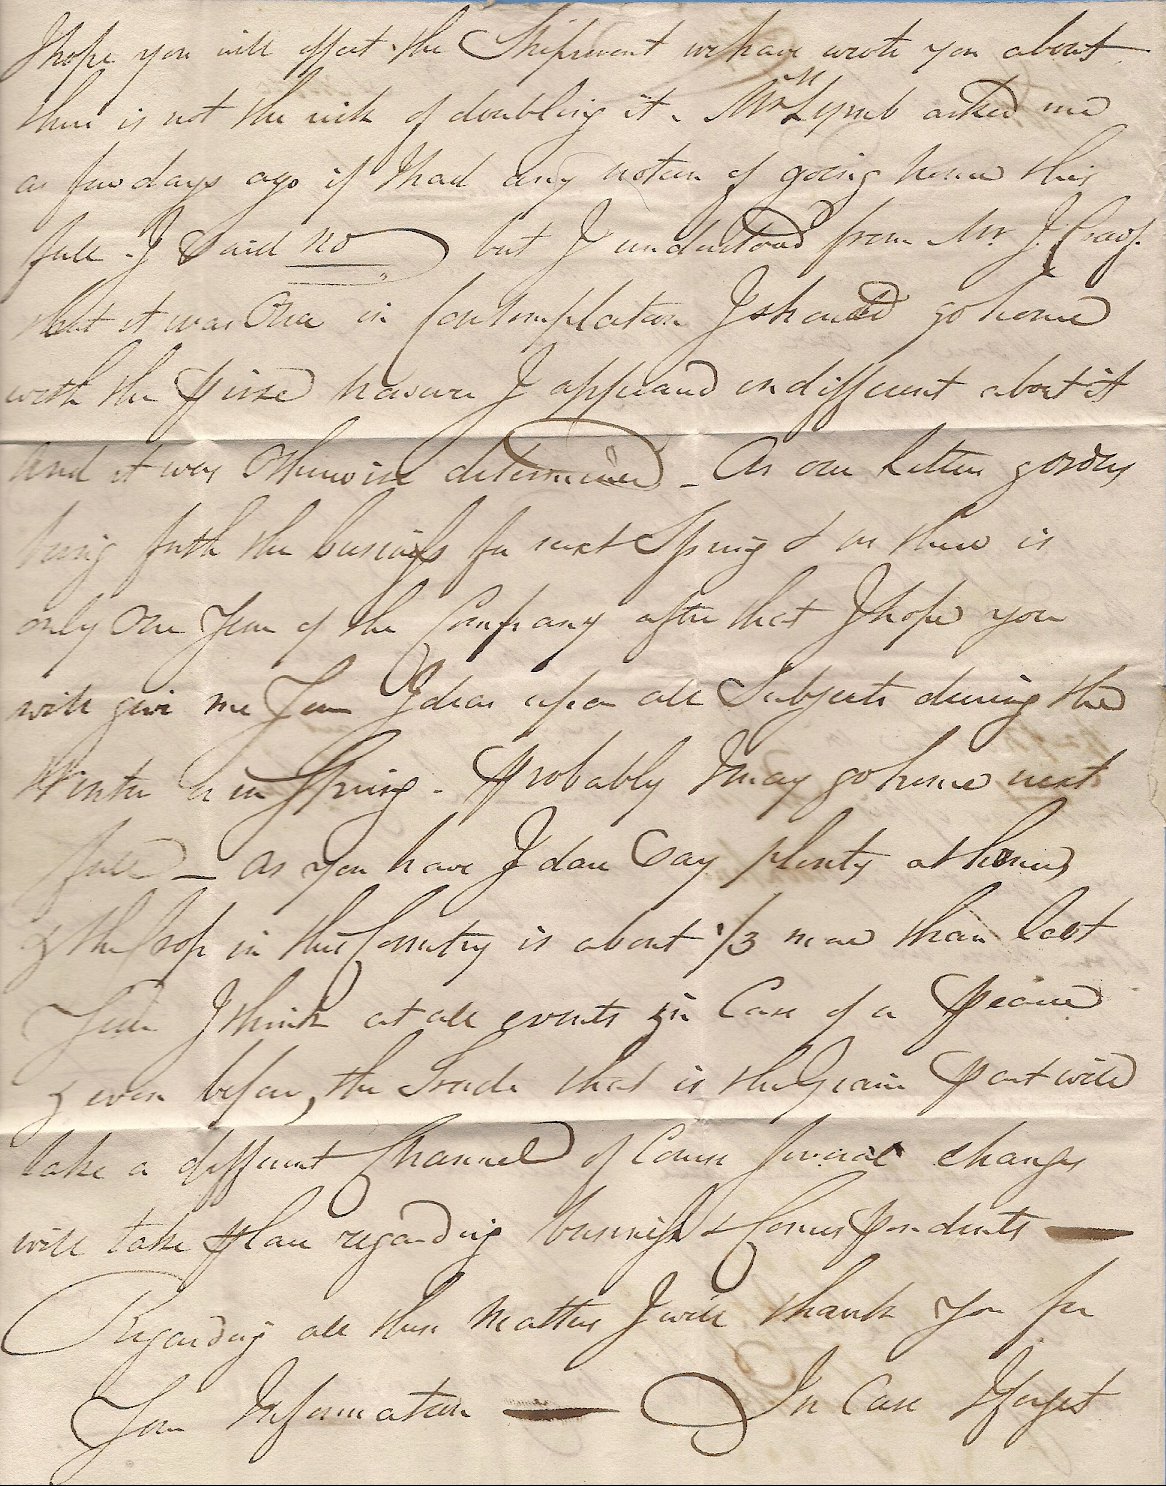 I hope you will effect the Shipment we have wrote you about
there is not the risk of doubling it - Mr Lymb asked me
a few days ago if I had any notion of going home this
fall - I Said no but I understood from Mr. J. Craig
that it was One in Contemplation I should go home
with the however I appeared indifferent about it
and it was Otherwise determined - As our Letter
being forth the business for next Spring & as there is
only One Year of the Company after that I hope you
will give me Your Ideas upon all Subjects during the
Winter or in Spring - Probably I may go home next
fall - as you have I dare Say plenty at home
& the Crop in this Country is about 1/3 more than last
Year I think at all events & in Case of a Peace
& even before, the Trade that is the Grain Part will
take a different Channel of Course Several changes
will take place regarding business & Correspondents
Regarding all these Matters I will thank you for
Your Information In Case I forget